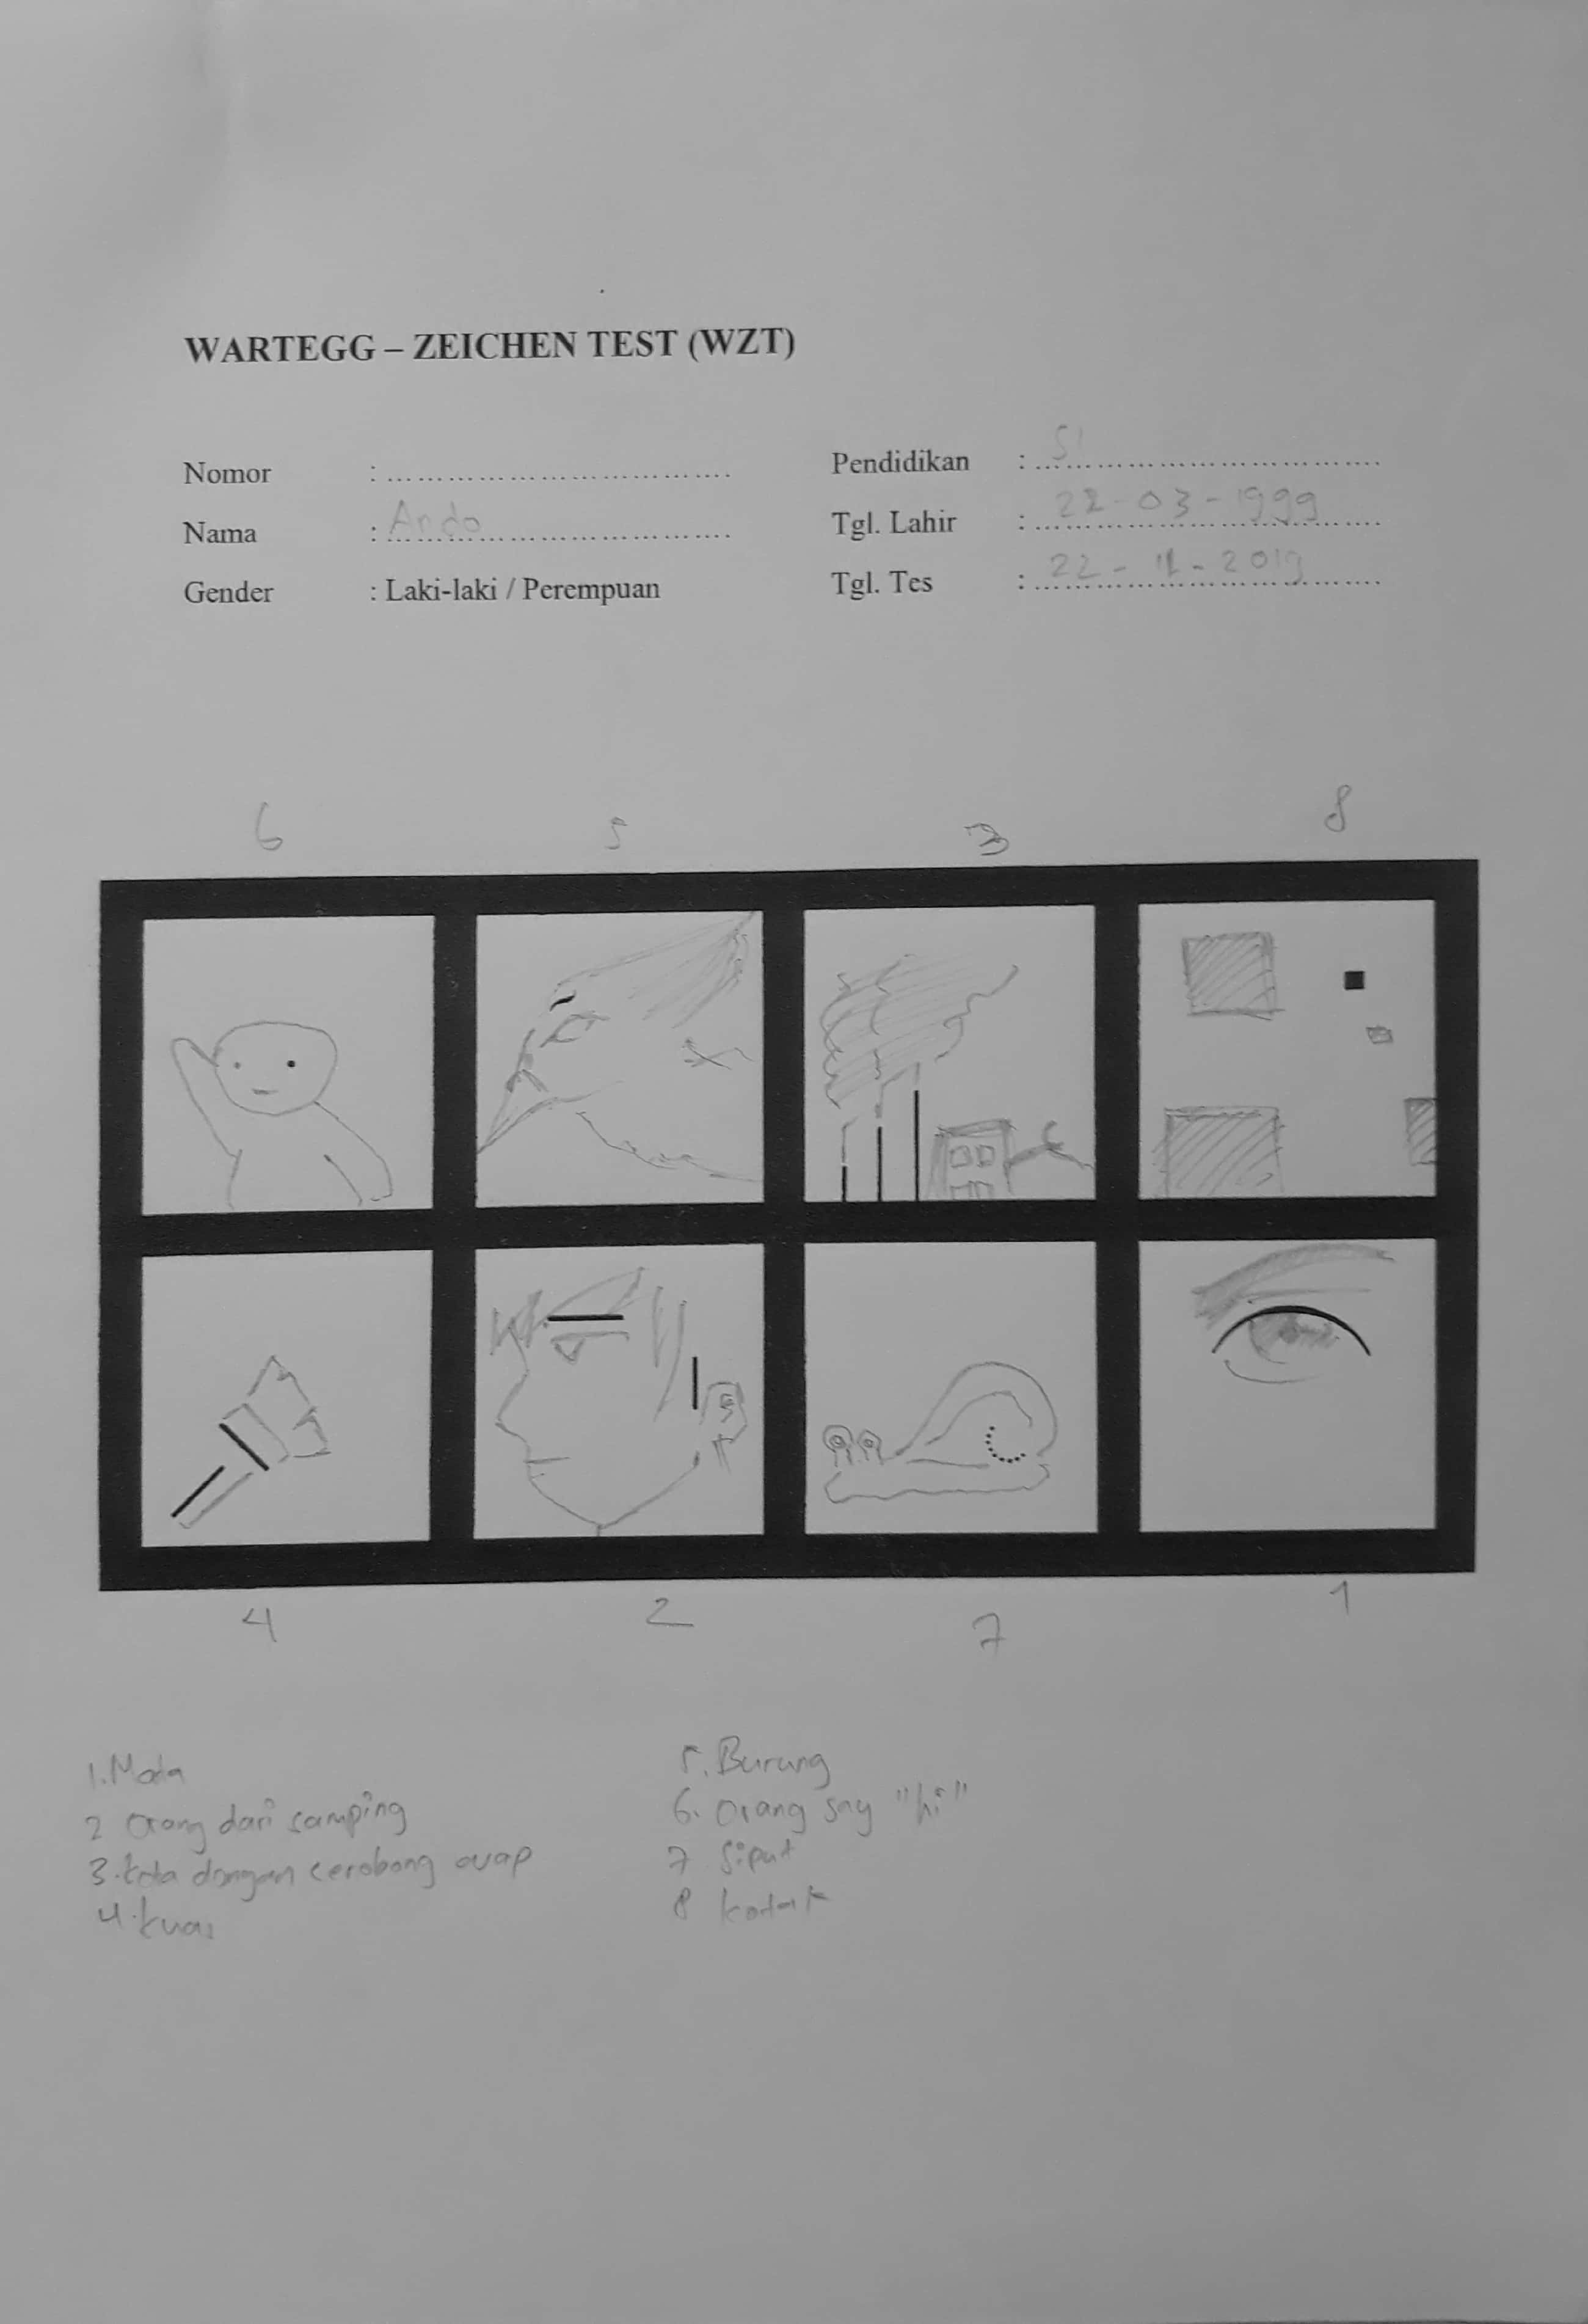 WARTEGG – ZEICHEN TEST (WZT)
Nomor : ........................................
Nama : Ando
Gender : Laki-laki / Perempuan
Pendidikan : S1
Tgl. Lahir : 22-03-1999
Tgl. Tes : 22-11-2019
6 5 3 8
4 2 7 1
1. Mata
2 Orang dari samping
3. kota dengan cerobong asap
4. kuas
5. Burung
6. Orang say "hi"
7 Siput
8 kotak